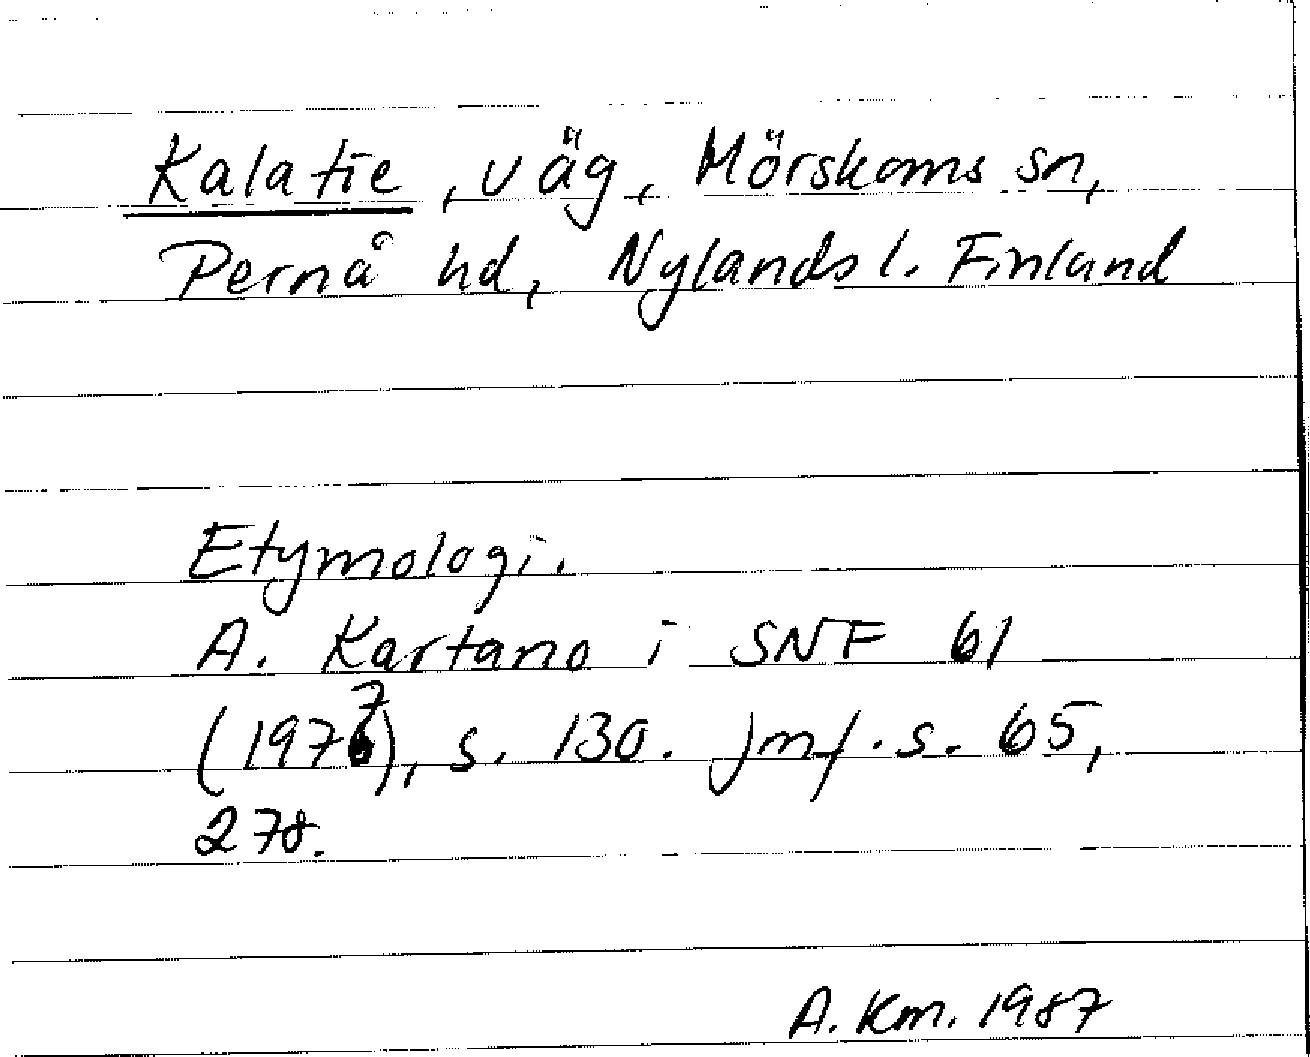 Kalatie, väg, Mörskoms sn,
Pernå hd, Nylands l. Finland
Etymologi.
A. Kartano i SNF 61
(1977), s. 130. Jmf. s. 65,
278.
A. Km. 1987